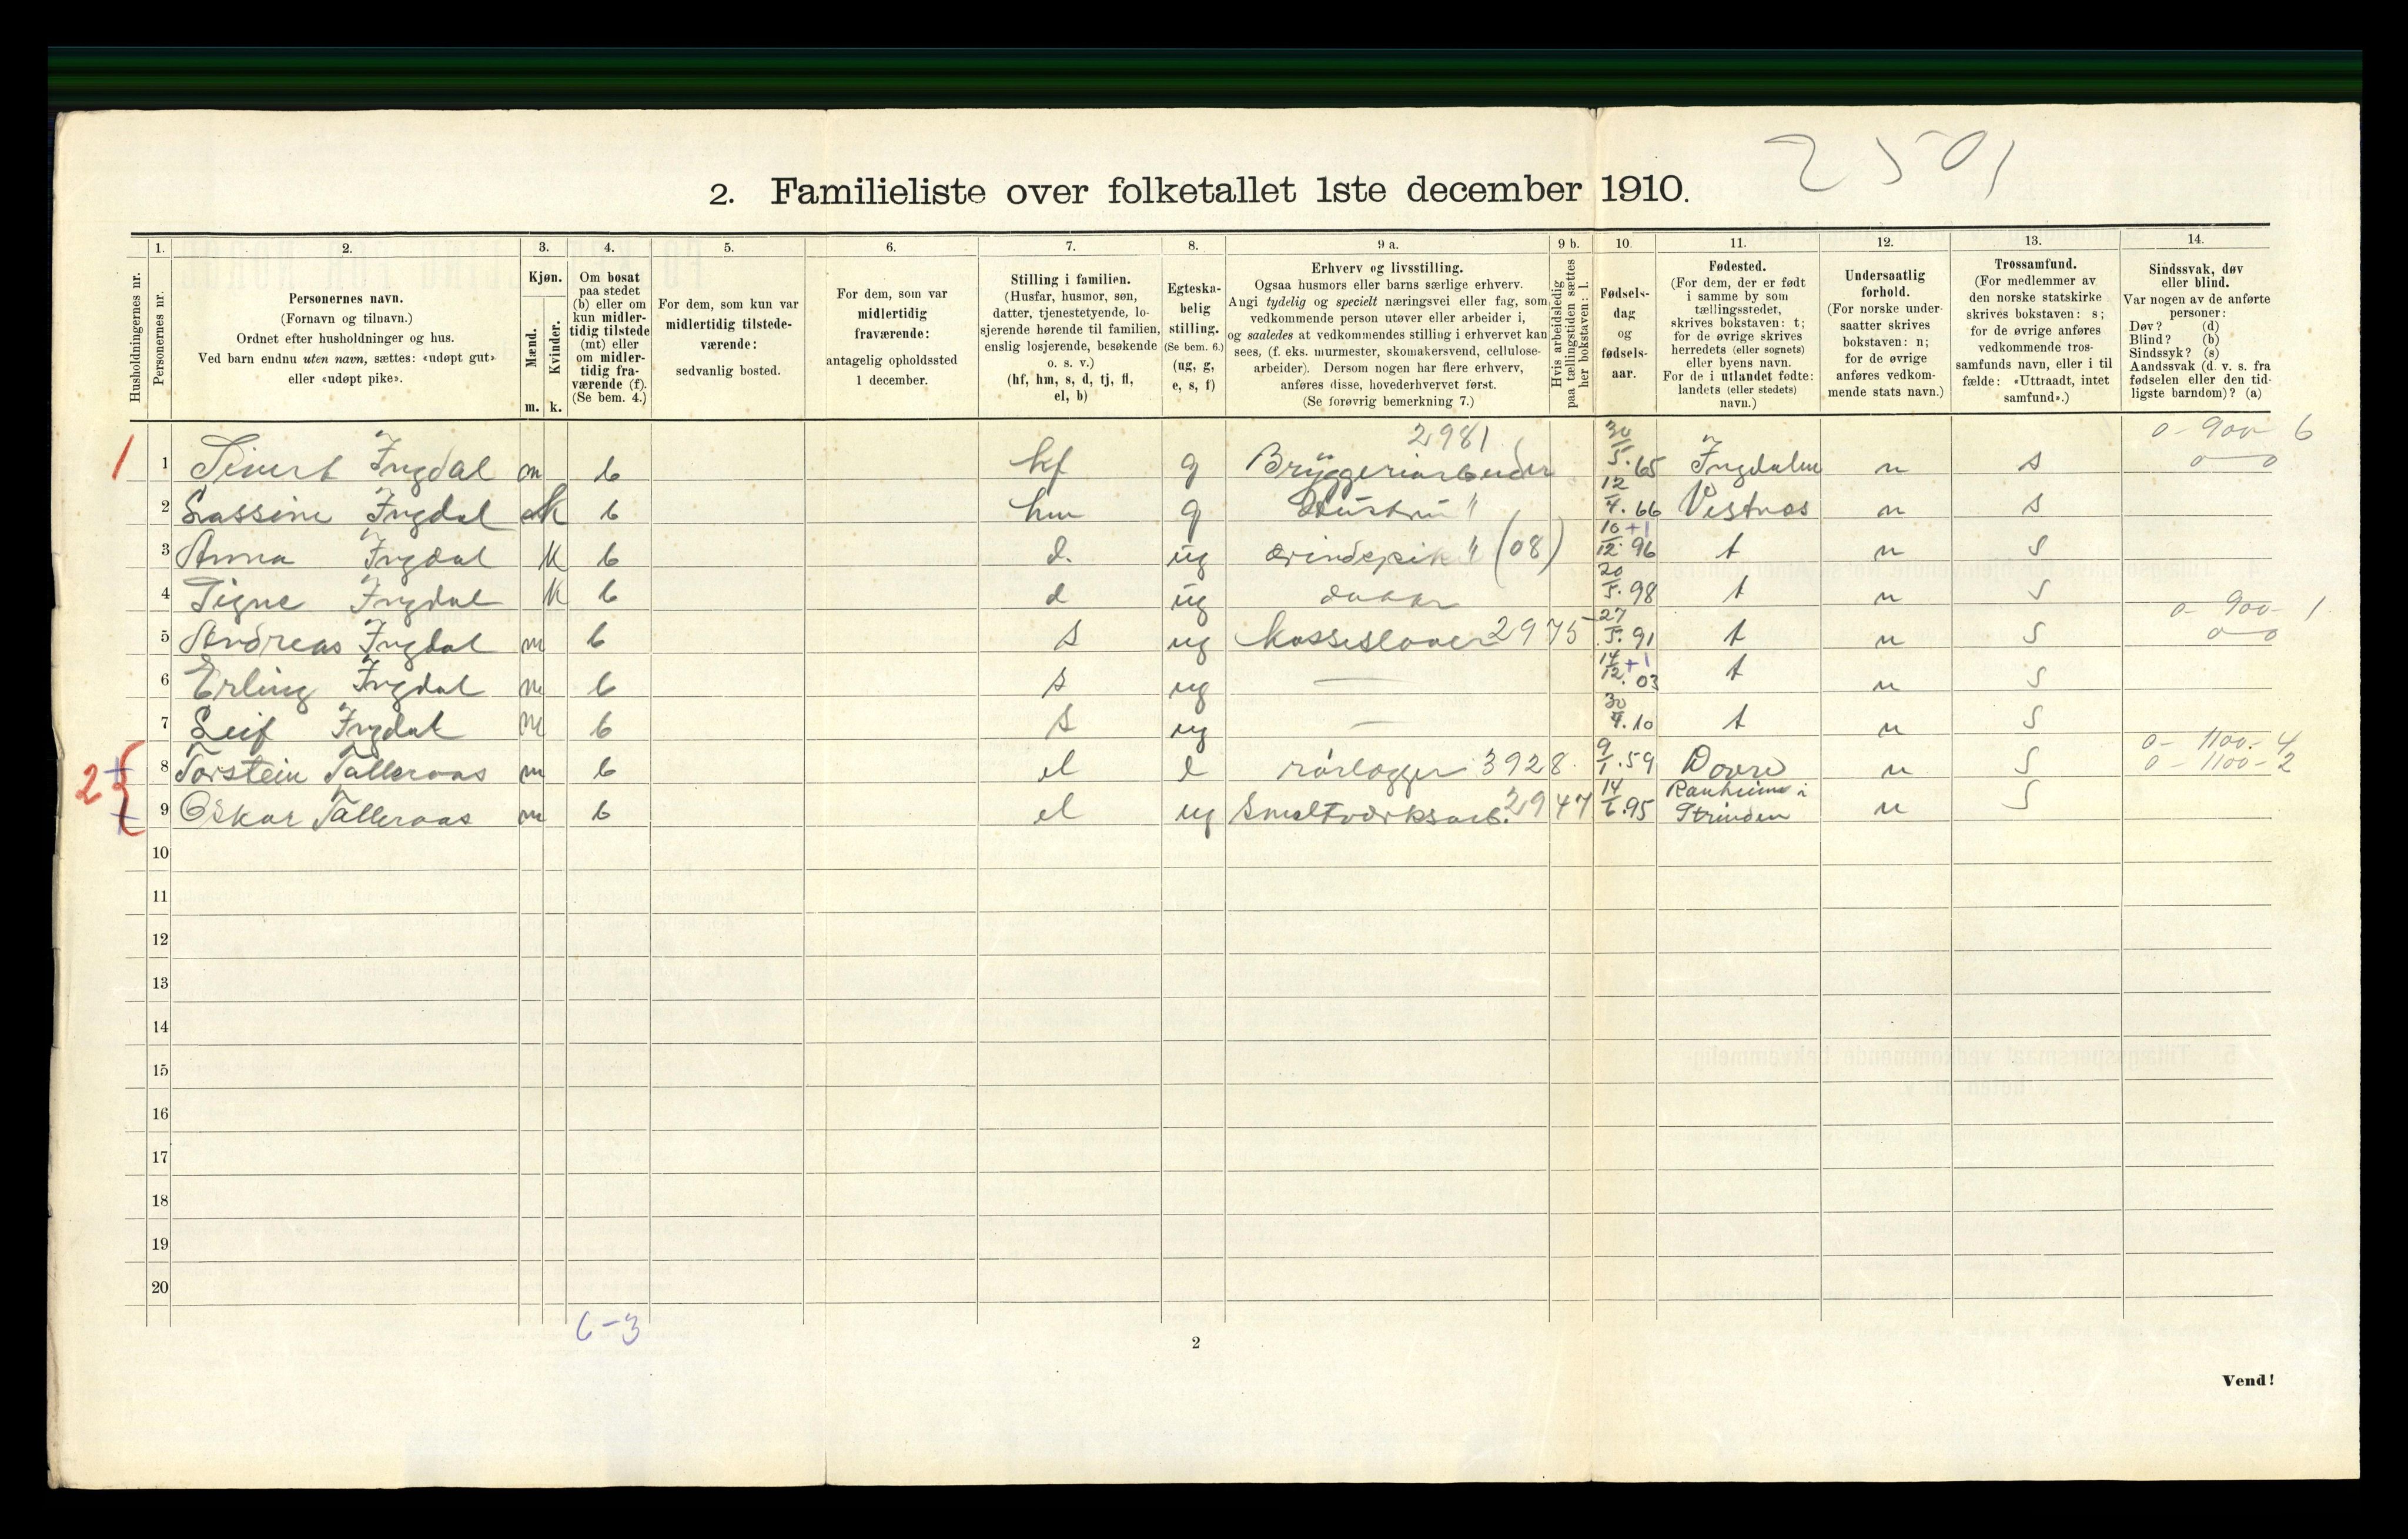 2501
2. Familieliste over folketallet 1ste december 1910.
1. 2. 3. 4. 5. 6. 7. 8. 9 a. 9 b. 10. 11. 12. 13. 14.
Husholdningernes nr.
Personernes nr.
Personernes navn.
(Fornavn og tilnavn.)
Ordnet efter husholdninger og hus.
Ved barn endnu uten navn, sættes: «udøpt gut»
eller «udøpt pike».
Kjøn.
Mænd.
Kvinder.
m. k.
Om bosat
paa stedet
(b) eller om
kun midler-
tidig tilstede
(mt) eller
om midler-
tidig fra-
værende (f).
(Se bem. 4.)
For dem, som kun var
midlertidig tilstede-
værende:
sedvanlig bosted.
For dem, som var
midlertidig
fraværende:
antagelig opholdssted
1 december.
Stilling i familien.
(Husfar, husmor, søn,
datter, tjenestetyende, lo-
sjerende hørende til familien,
enslig losjerende, besøkende
o. s. v.)
(hf, hm, s, d, tj, fl,
el, b)
Egteska-
belig
stilling.
(Se bem. 6.)
(ug, g,
e, s, f)
Erhverv og livsstilling.
Ogsaa husmors eller barns særlige erhverv.
Angi tydelig og specielt næringsvei eller fag, som
vedkommende person utøver eller arbeider i,
og saaledes at vedkommendes stilling i erhvervet kan
sees, (f. eks. murmester, skomakersvend, cellulose-
arbeider). Dersom nogen har flere erhverv,
anføres disse, hovederhvervet først.
(Se forøvrig bemerkning 7.)
Hvis arbeidsledig
paa tællingstiden sættes
her bokstaven: l.
Fødsels-
dag
og
fødsels-
aar.
Fødested.
(For dem, der er født
i samme by som
tællingsstedet,
skrives bokstaven: t;
for de øvrige skrives
herredets (eller sognets)
eller byens navn.
For de i utlandet fødte:
landets (eller stedets)
navn.)
Undersaatlig
forhold.
(For norske under-
saatter skrives
bokstaven: n;
for de øvrige
anføres vedkom-
mende stats navn.)
Trossamfund.
(For medlemmer av
den norske statskirke
skrives bokstaven: s;
for de øvrige anføres
vedkommende tros-
samfunds navn, eller i til-
fælde: «Uttraadt, intet
samfund».)
Sindssvak, døv
eller blind.
Var nogen av de anførte
personer:
Døv? (d)
Blind? (b)
Sindssyk? (s)
Aandssvak (d. v. s. fra
fødselen eller den tid-
ligste barndom)? (a)
2981 0 - 900 - 6
1 1 Sivert Ingdal m b hf g Bryggeriarbeider 30/5.65 Ingdalen n s 0 - 0
2 Lassine Ingdal k b hm g Hustru " 12/4.66 Vestnes n s
3 Anna Ingdal k b d. ug ærindepike " (08) 10/12.96 +1 t n s
4 Signe Ingdal k b d ug datter 20/5.98 t n s
0 - 900 - 1
5 Andreas Ingdal m b s ug 2975 27/5.91 t n s 0 - 0
6 Erling Ingdal m b s ug — 14/12.03 +1 t n s
7 Leif Ingdal m b s ug — 30/4.10 t n s
0 - 1100 - 4
2 8 Torstein Talleraas m b el e rørlægger 3928. 9/1.59 Dovre n s 0 - 1100 - 2
9 Oskar Talleraas m b el ug Smeltværksarb. 2947 14/6.95 Ranheim i Strinden n s
10
11
12
13
14
15
16
17
18
19
20
6-3
2
Vend!